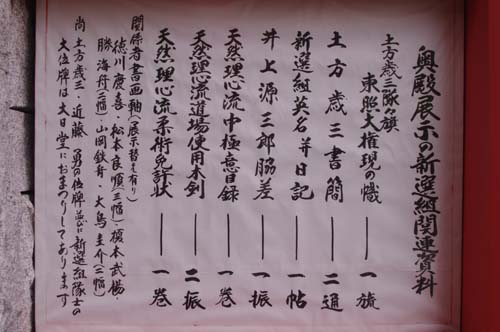 奥殿展示の新選組関連資料
土方歳三隊々旗
東照大権現の幟 ── 一旒
土方歳三書簡 ── 二通
新選組英名并日記 ── 一帖
井上源三郎脇差 ── 一振
天然理心流中極意目録 ── 一巻
天然理心流道場使用木剣 ── 二振
天然理心流柔術免許状 ── 一巻
関係者書画軸(展示替え有り)
徳川慶喜・松本良順(三幅)・榎本武揚・
勝海舟(二幅)・山岡鉄舟・大鳥圭介(二幅)
尚土方歳三・近藤勇の位牌並びに新選組隊士の
大位牌は大日堂におまつりしてあります